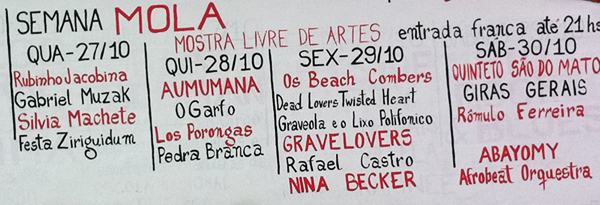 SEMANA MOLA
MOSTRA LIVRE DE ARTES entrada franca até 21hs
QUA-27/10
Rubinho Jacobina
Gabriel Muzak
Silvia Machete
Festa Ziriguidum
QUI-28/10
AUMUMANA
O Garfo
Los Porongas
Pedra Branca
SEX-29/10
Os Beach Combers
Dead Lovers Twisted Heart
Graveola e o Lixo Polifonico
GRAVELOVERS
Rafael Castro
NINA BECKER
SAB-30/10
QUINTETO SÃO DO MATO
GIRAS GERAIS
Rômulo Ferreira
ABAYOMY
Afrobeat Orquestra